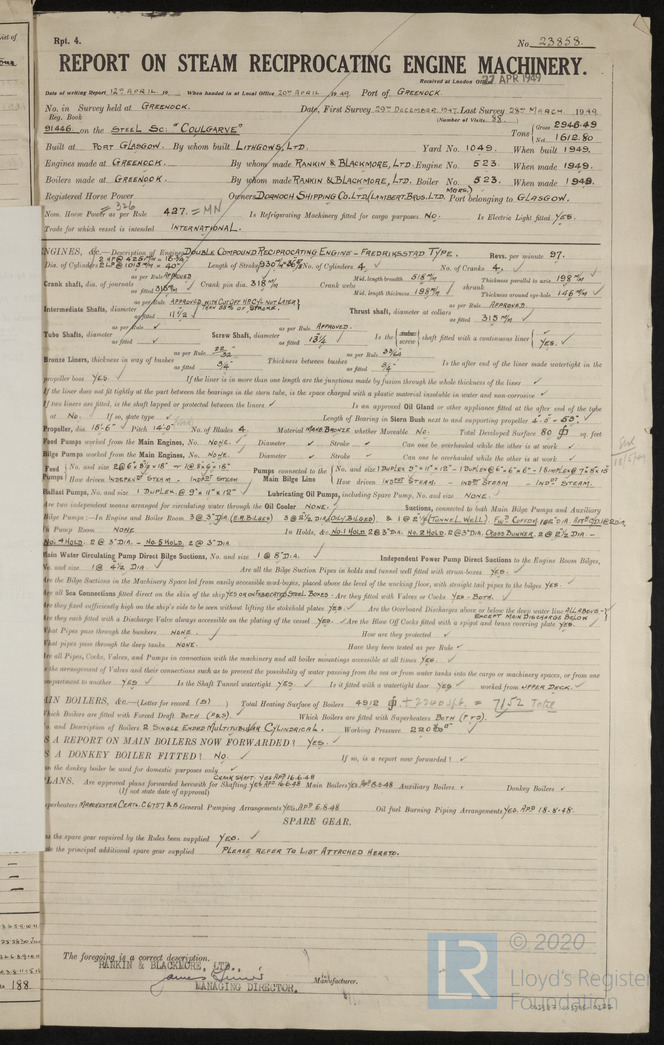 Rpt. 4.
No. 23858.
REPORT ON STEAM RECIPROCATING ENGINE MACHINERY.
Received at London Office 27 APR 1949
Date of writing Report 12TH APRIL 19 When handed in at Local Office 20TH APRIL 1949 Port of GREENOCK.
No. in Survey held at GREENOCK. Date, First Survey 29TH DECEMBER. 1947. Last Survey 28TH MARCH 1949
Reg. Book (Number of Visits 88
91446 on the STEEL SC: "COULGARVE" Tons Gross 2946.49
Net 1612.80
Built at PORT GLASGOW. By whom built LITHGOWS, LTD. Yard No. 1049. When built 1949.
Engines made at GREENOCK. By whom made RANKIN & BLACKMORE, LTD. Engine No. 523. When made 1949.
Boilers made at GREENOCK. By whom made RANKIN & BLACKMORE, LTD. Boiler No. 523. When made 1949.
Registered Horse Power Owners DORNOCH SHIPPING CO. LTD. (LAMBERT BROS. LTD. MGRS.) Port belonging to GLASGOW.
Nom. Horse Power as per Rule 326 427. = MN Is Refrigerating Machinery fitted for cargo purposes NO. Is Electric Light fitted YES.
Trade for which vessel is intended INTERNATIONAL.
NGINES, &c.—Description of Engines DOUBLE COMPOUND RECIPROCATING ENGINE - FREDRIKSSTAD TYPE. Revs. per minute 97.
Dia. of Cylinders Length of Stroke No. of Cylinders 4, No. of Cranks 4,
Crank shaft, dia. of journals as per Rule APPROVED as fitted 318 M/M Crank pin dia. 318 M/M Crank webs Mid. length breadth 518 M/M Mid. length thickness 198 M/M shrunk Thickness parallel to axis 198 M/M Thickness around eye-hole 146 M/M
Intermediate Shafts, diameter as per Rule APPROVED WITH CUT OFF HP CYL NOT LATER THAN 55% OF STROKE. as fitted 11 1/2 Thrust shaft, diameter at collars as per Rule APPROVED. as fitted 315 M/M
Tube Shafts, diameter as per Rule as fitted Screw Shaft, diameter as per Rule APPROVED. as fitted 13 1/4 Is the screw shaft fitted with a continuous liner YES.
Bronze Liners, thickness in way of bushes as per Rule as fitted 3/4 Thickness between bushes as per Rule as fitted 3/4 Is the after end of the liner made watertight in the
propeller boss YES. If the liner is in more than one length are the junctions made by fusion through the whole thickness of the liner
If the liner does not fit tightly at the part between the bearings in the stern tube, is the space charged with a plastic material insoluble in water and non-corrosive
If two liners are fitted, is the shaft lapped or protected between the liners Is an approved Oil Gland or other appliance fitted at the after end of the tube
at No. If so, state type Length of Bearing in Stern Bush next to and supporting propeller
Propeller, dia. 15'-6" Pitch 14'-0" No. of Blades 4. Material MANG BRONZE whether Moveable NO. Total Developed Surface 80 sq. feet
Feed Pumps worked from the Main Engines, No. NONE. Diameter Stroke Can one be overhauled while the other is at work
Bilge Pumps worked from the Main Engines, No. NONE. Diameter Stroke Can one be overhauled while the other is at work
Feed Pumps No. and size Pumps connected to the Main Bilge Line No. and size
How driven INDEPNT STEAM - INDPT STEAM How driven INDPT STEAM. - INDPT STEAM - INDPT STEAM.
Ballast Pumps, No. and size 1 DUPLEX @ 9" x 11" x 12" Lubricating Oil Pumps, including Spare Pump, No. and size NONE.
Are two independent means arranged for circulating water through the Oil Cooler NONE. Suctions, connected to both Main Bilge Pumps and Auxiliary
Bilge Pumps:—In Engine and Boiler Room
In Pump Room NONE. In Holds, &c. NO. 1 HOLD 2 @ 3" DIA. NO. 2 HOLD. 2 @ 3" DIA. CROSS BUNKER. 2 @ 2 1/2 DIA -
NO. 4 HOLD. 2 @ 3" DIA. - NO. 5 HOLD. 2 @ 3" DIA
Main Water Circulating Pump Direct Bilge Suctions, No. and size 1 @ 8" DIA. Independent Power Pump Direct Suctions to the Engine Room Bilges,
No. and size 1 @ 4 1/2 DIA. Are all the Bilge Suction Pipes in holds and tunnel well fitted with strum-boxes YES.
Are the Bilge Suctions in the Machinery Space led from easily accessible mud-boxes, placed above the level of the working floor, with straight tail pipes to the bilges YES.
Are all Sea Connections fitted direct on the skin of the ship YES OR ON FABRICATED STEEL BOXES. Are they fitted with Valves or Cocks YES - BOTH.
Are they fixed sufficiently high on the ship's side to be seen without lifting the stokehold plates YES. Are the Overboard Discharges above or below the deep water line ALL ABOVE - EXCEPT MAIN DISCHARGE BELOW
Are they each fitted with a Discharge Valve always accessible on the plating of the vessel YES. Are the Blow Off Cocks fitted with a spigot and brass covering plate YES.
What Pipes pass through the bunkers NONE. How are they protected
What pipes pass through the deep tanks NONE. Have they been tested as per Rule
Are all Pipes, Cocks, Valves, and Pumps in connection with the machinery and all boiler mountings accessible at all times YES.
Is the arrangement of Valves and their connections such as to prevent the possibility of water passing from the sea or from water tanks into the cargo or machinery spaces, or from one
compartment to another YES Is the Shaft Tunnel watertight YES. Is it fitted with a watertight door YES worked from UPPER DECK.
AIN BOILERS, &c.—(Letter for record (S) Total Heating Surface of Boilers 4912 + 2240 sq ft. = 7152 Total
Which Boilers are fitted with Forced Draft BOTH (P&S). Which Boilers are fitted with Superheaters BOTH (P & S).
No. and Description of Boilers 2 SINGLE ENDED MULTITUBULAR CYLINDRICAL. Working Pressure 220
S A REPORT ON MAIN BOILERS NOW FORWARDED? YES.
S A DONKEY BOILER FITTED? NO. If so, is a report now forwarded?
Is the donkey boiler be used for domestic purposes only
CRANK SHAFT. YES APD 16.6.48
PLANS. Are approved plans forwarded herewith for Shafting YES APD 16.6.48 Main Boilers YES APD Auxiliary Boilers Donkey Boilers
(If not state date of approval)
Superheaters MANCHESTER CERTS. General Pumping Arrangements YES, APD 5.8.48 Oil fuel Burning Piping Arrangements YES. APD 18.8.48.
SPARE GEAR.
as the spare gear required by the Rules been supplied YES.
ate the principal additional spare gear supplied PLEASE REFER TO LIST ATTACHED HERETO.
The foregoing is a correct description.
RANKIN & BLACKMORE, LTD.
Manufacturer.
MANAGING DIRECTOR.
188.
LR
© 2020
Lloyd's Register
Foundation